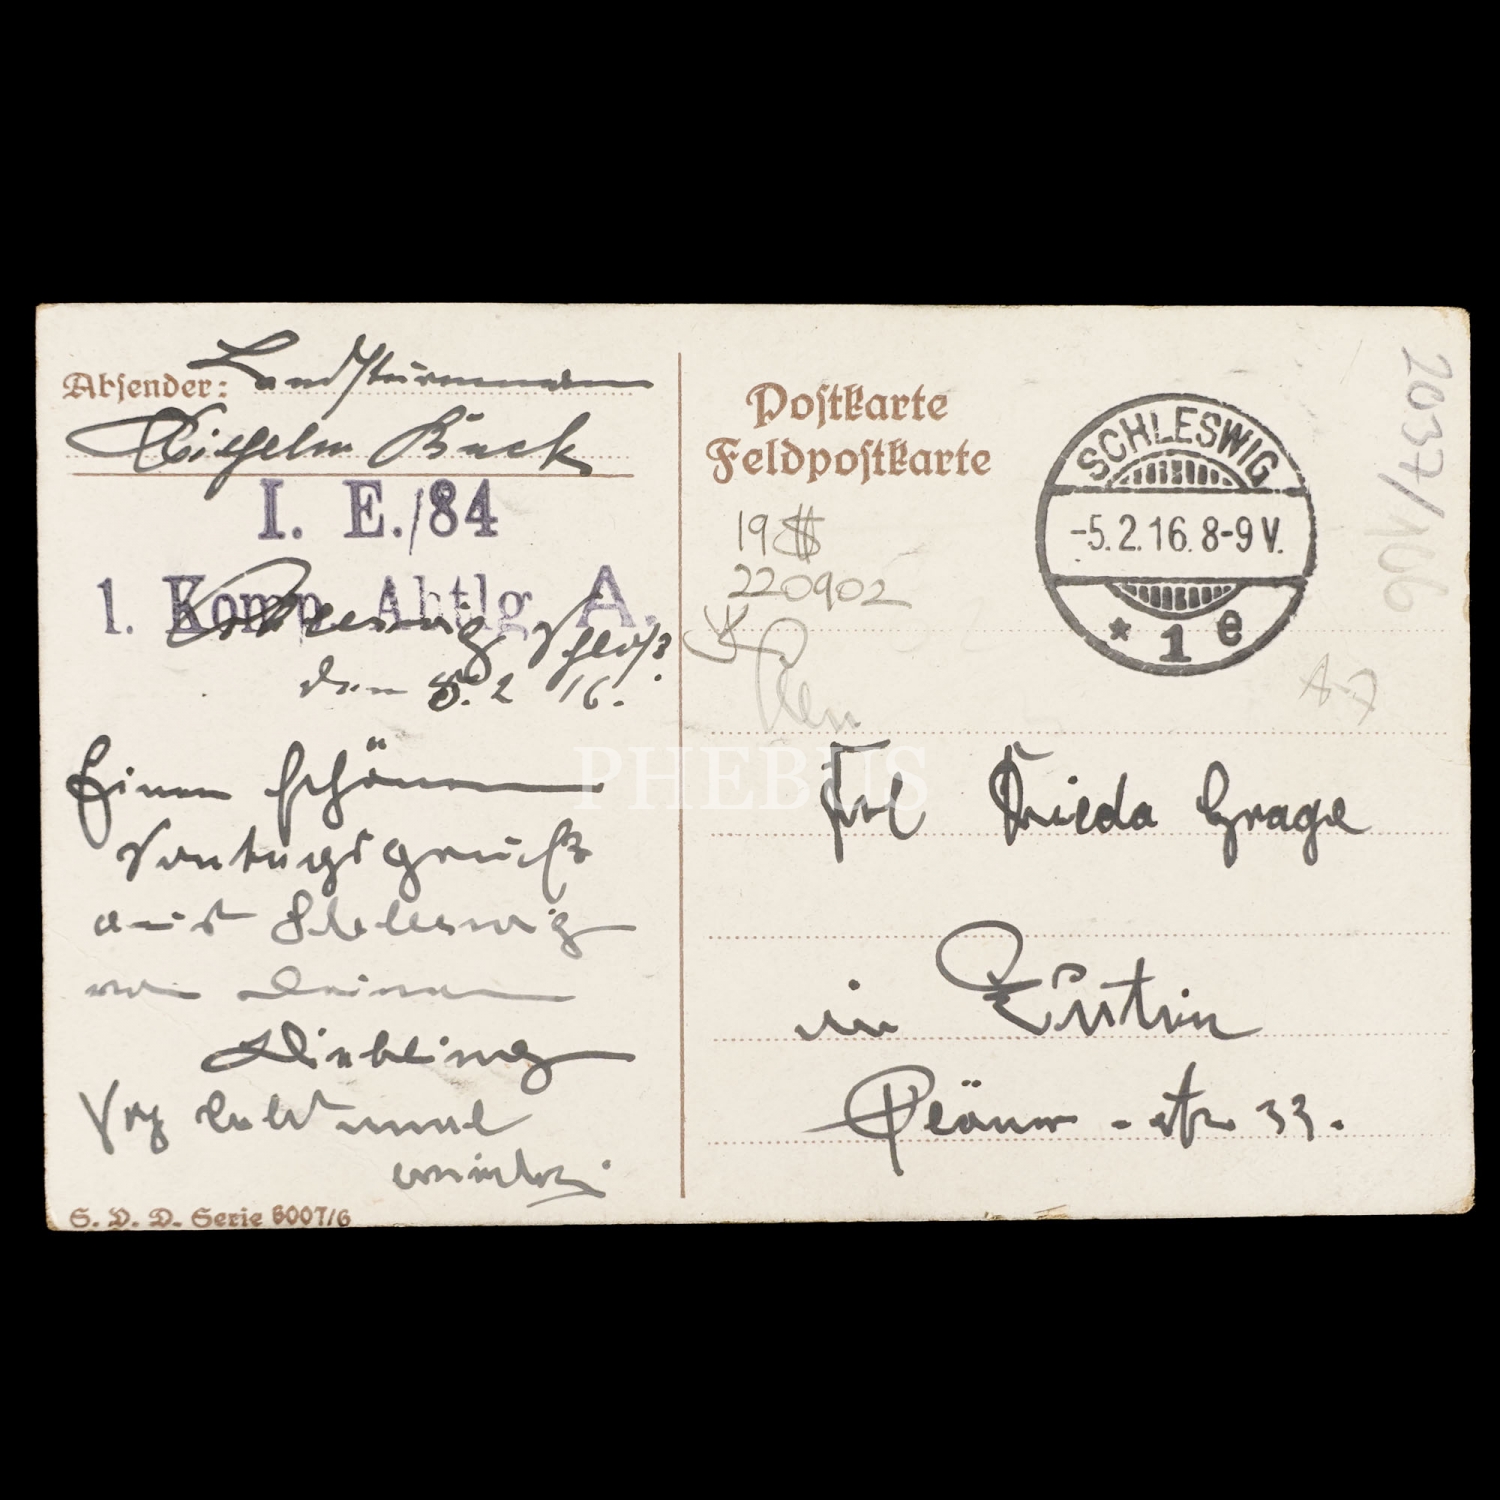 Absender: Landsturmmann
Wilhelm Buck
I. E./84
1. Komp. Abtlg. A.
Schleswig Schloß
den 5. 2 16.
Einen schönen
Sontagsgruß
aus Schleswig
von Deinen
Liebling
S. V. D. Serie 6007/6
Postkarte
Feldpostkarte
SCHLESWIG
-5.2.16.8-9 V.
* 1 e
19
220902
2037/166
A-7
PHEBUS
Frl Frieda Grage
in Eutin
Plöner - str 33.